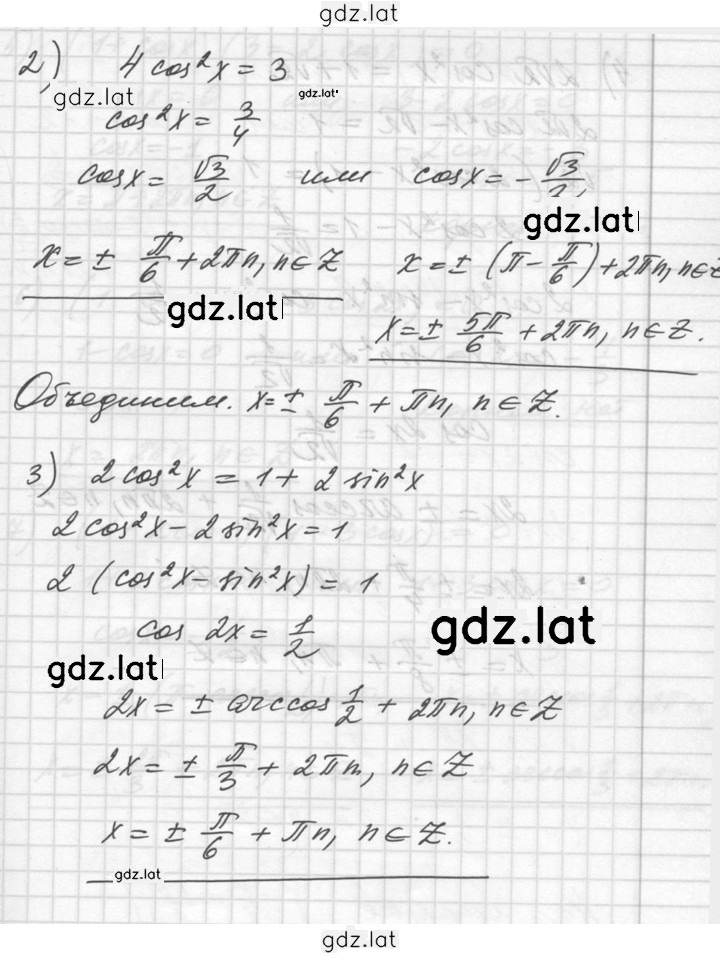 gdz.lat
2) 4 cos²x = 3
gdz.lat gdz.lat
cos²x = 3/4
cosx = √3/2 или cosx = - √3/2
gdz.lat
x = ± π/6 + 2πn, n ∈ Z x = ± (π - π/6) + 2πn, n ∈ Z
gdz.lat
x = ± 5π/6 + 2πn, n ∈ Z.
Объединим. x = ± π/6 + πn, n ∈ Z.
3) 2 cos²x = 1 + 2 sin²x
2 cos²x - 2 sin²x = 1
2 (cos²x - sin²x) = 1
cos 2x = 1/2
gdz.lat
gdz.lat
2x = ± arccos 1/2 + 2πn, n ∈ Z
2x = ± π/3 + 2πn, n ∈ Z
x = ± π/6 + πn, n ∈ Z.
gdz.lat
gdz.lat